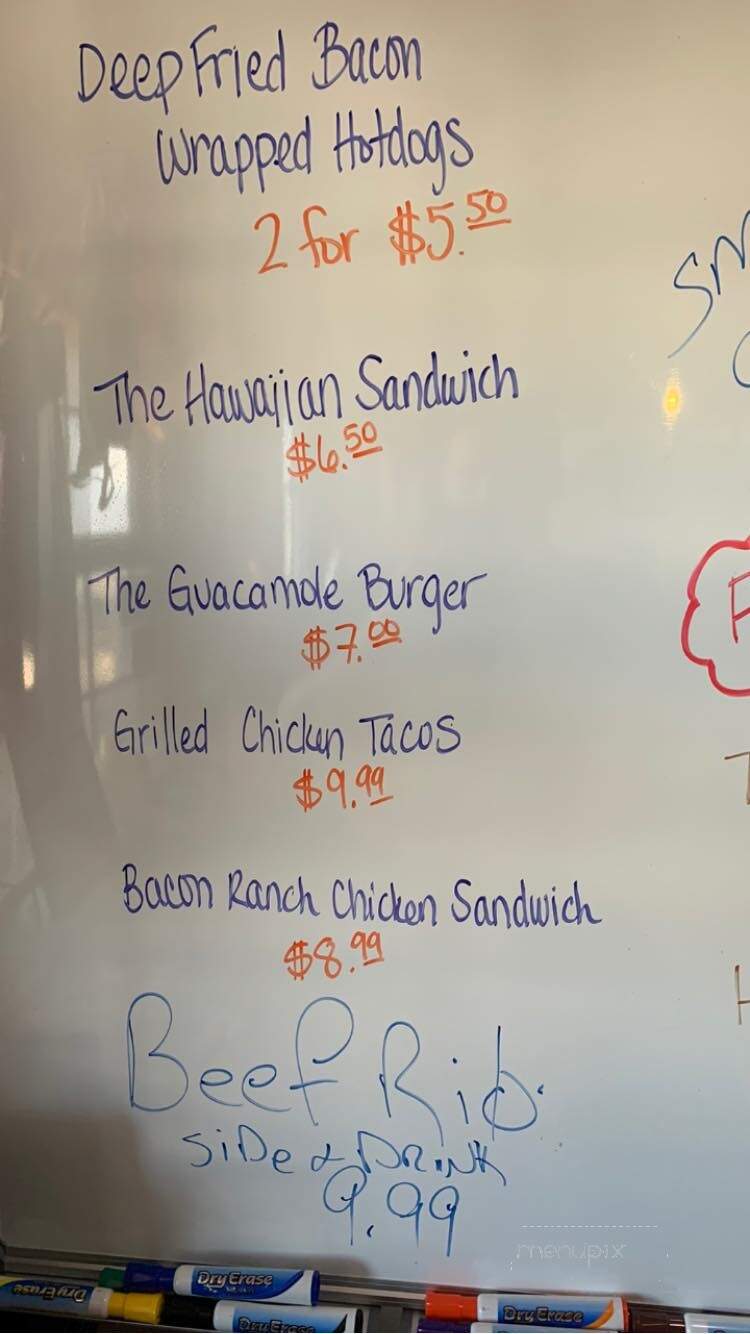 Deep Fried Bacon
Wrapped Hotdogs
2 for $5.50
The Hawaiian Sandwich
$6.50
The Guacamole Burger
$7.00
Grilled Chicken Tacos
$9.99
Bacon Ranch Chicken Sandwich
$8.99
Beef Rib
SiDe & DRiNK
9.99
menupix
DryErase
DryErase
DryErase
DryErase